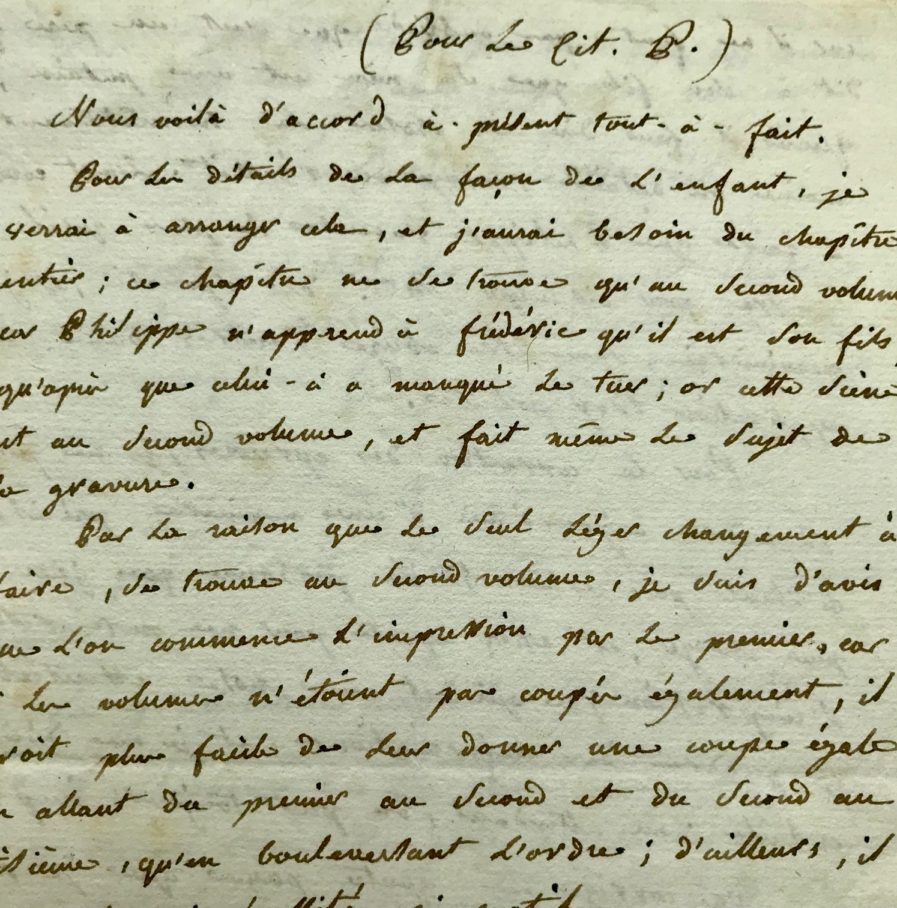 (Pour Le Cit. P.)
Nous voilà d'accord à-présent tout-à-fait.
Pour les détails de la façon de L'enfant, je
verrai à arranger cela, et j'aurai besoin du chapître
entier; ce chapître ne se trouve qu'au second volum
car Philippe n'apprend à frédéric qu'il est son fils
qu'après que celui-à a manqué le tuer; or cette scène
est au second volume, et fait même le sujet de
la gravure.
Par la raison que le seul léger changement à
faire, se trouve au second volume, je suis d'avis
que L'on commence L'impression par le premier, car
si les volumes n'étoient pas coupés également, il
seroit plus facile de leur donner une coupe égale
en allant du premier au second et du second au
troisième, qu'en bouleversant L'ordre; d'ailleurs, il